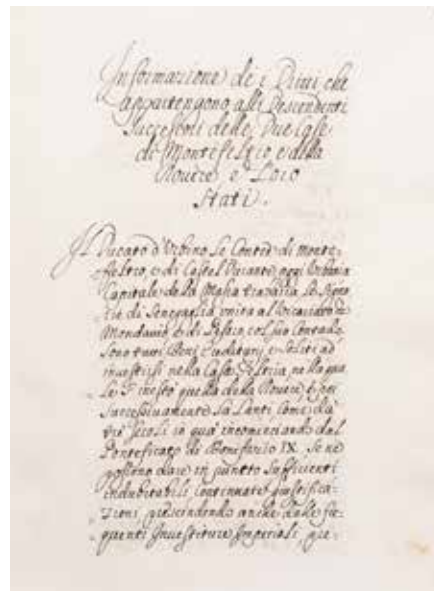 Informazione de i Dritti che
appartengono alli Descendenti
Successori delle Due Case
di Montefeltro, e della
Rovere e Loro
Stati.
Il Ducato d'Urbino, le Contee di Monte
feltro, e di Castel Durante, oggi Urbania
Capitale della Massa Trabaria, le Signo
rie di Senegaglia unita al Vicariato di
Mondavio, e di Pesaro, col suo Contado,
sono tutti Beni ereditarij, e soliti ad
investirsi nella Casa Feltria, nella qua
le s'inestò quella della Rovere, e per
successivamente la Lanti come da
tre secoli in qua incominciando dal
Pontificato di Bonifazio IX. Se ne
possono dare in punto sufficienti
indubitabili continuate giustifica:
zioni, prescindendo anche dalle fre
quenti Investiture Imperiali, pre-